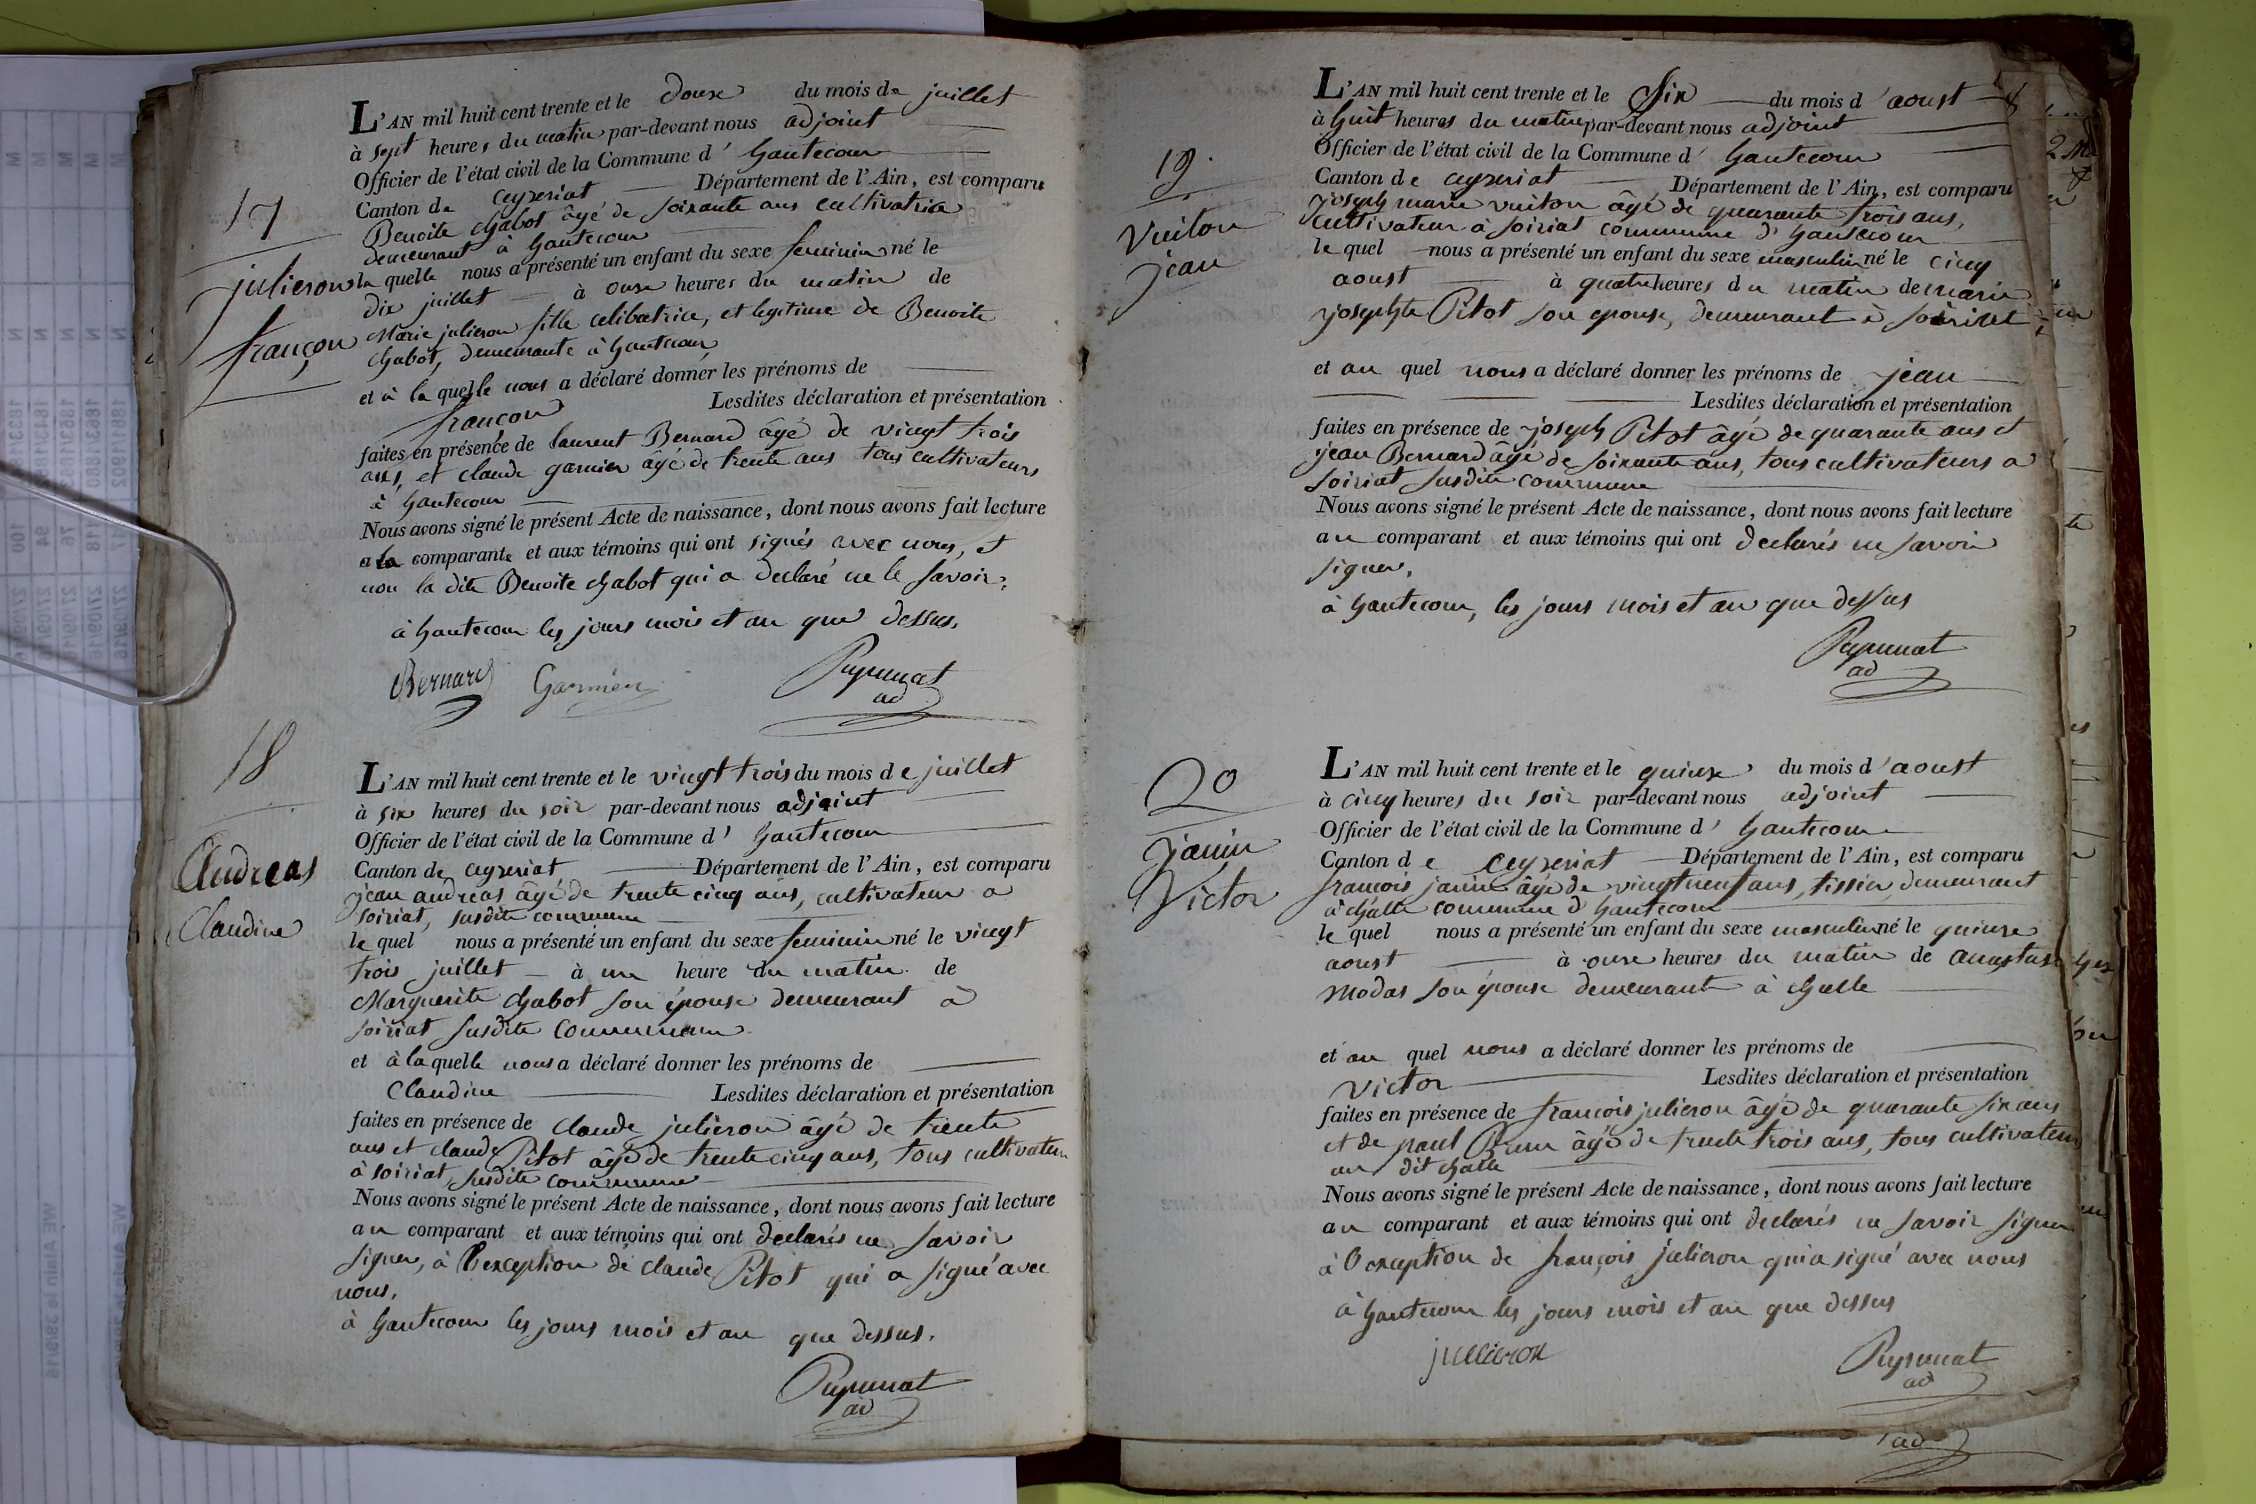 17
julieron
françon
L'AN mil huit cent trente et le douze du mois de juillet
à sept heures du matin par-devant nous adjoint
Officier de l'état civil de la Commune d' hautecour
Canton de ceyzeriat Département de l'Ain, est comparu
Benoite chabot âgé de soixante ans cultivatrice
demeurant à hautecour
la quelle nous a présenté un enfant du sexe feminin né le
dix juillet à onze heures du matin de
Marie julieron fille celibatrice, et legitime de Benoite
chabot, demeurante à hautecour
et à la quelle nous a déclaré donner les prénoms de
françon Lesdites déclaration et présentation
faites en présence de laurent Bernard âgé de vingt trois
ans, et claude garnier âgé de trente ans tous cultivateurs
à hautecour
Nous avons signé le présent Acte de naissance, dont nous avons fait lecture
a la comparante et aux témoins qui ont signés avec nous, et
non la dite Benoite chabot qui a declaré ne le savoir.
à hautecour les jours mois et an que dessus.
Bernard Garnier
ad
18
Andreas
Claudine
L'AN mil huit cent trente et le vingt trois du mois de juillet
à six heures du soir par-devant nous adjoint
Officier de l'état civil de la Commune d' hautecour
Canton de ceyzeriat Département de l'Ain, est comparu
jean andreas âgé de trente cinq ans, cultivateur a
soiriat, susdite commune
le quel nous a présenté un enfant du sexe feminin né le vingt
trois juillet à un heure du matin de
Marguerite chabot son épouse demeurant à
soiriat susdite commune
et à la quelle nous a déclaré donner les prénoms de
Claudine Lesdites déclaration et présentation
faites en présence de claude julieron âgé de trente
ans et claude Pitot âgé de trente cinq ans, tous cultivateurs
à soiriat, susdite commune
Nous avons signé le présent Acte de naissance, dont nous avons fait lecture
au comparant et aux témoins qui ont declarés ne savoir
signer, à l'exception de claude Pitot qui a signé avec
nous.
à hautecour les jours mois et an que dessus.
ad
19
Vuiton
jean
L'AN mil huit cent trente et le Six du mois d'aoust
à huit heures du matin par-devant nous adjoint
Officier de l'état civil de la Commune d' hautecour
Canton de ceyzeriat Département de l'Ain, est comparu
joseph marie vuiton âgé de quarante trois ans,
cultivateur à soiriat commune d'hautecour
le quel nous a présenté un enfant du sexe masculin né le cinq
aoust à quatre heures du matin de marie
josephte Pitot son epouse, demeurant à soiriat
et au quel nous a déclaré donner les prénoms de jean
Lesdites déclaration et présentation
faites en présence de joseph Pitot âgé de quarante ans et
jean Bernard âgé de soixante ans, tous cultivateurs a
soiriat susdite commune
Nous avons signé le présent Acte de naissance, dont nous avons fait lecture
au comparant et aux témoins qui ont declarés ne savoir
signer,
à hautecour, les jours mois et an que dessus
ad
20
janin
Victor
L'AN mil huit cent trente et le quinze du mois d'aoust
à cinq heures du soir par-devant nous adjoint
Officier de l'état civil de la Commune d' hautecour
Canton de Ceyzeriat Département de l'Ain, est comparu
françois janin âgé de vingt neuf ans, tissier, demeurant
à challe commune d'hautecour
le quel nous a présenté un enfant du sexe masculin né le quinze
aoust à onze heures du matin de anastasie
modas son épouse demeurant à challe
et au quel nous a déclaré donner les prénoms de
Victor Lesdites déclaration et présentation
faites en présence de françois julieron âgé de quarante six ans
et de paul âgé de trente trois ans, tous cultivateurs
au dit challe
Nous avons signé le présent Acte de naissance, dont nous avons fait lecture
au comparant et aux témoins qui ont declarés ne savoir signer
à l'exception de françois julieron qui a signé avec nous
à hautecour les jours mois et an que dessus
julieron
ad
ad